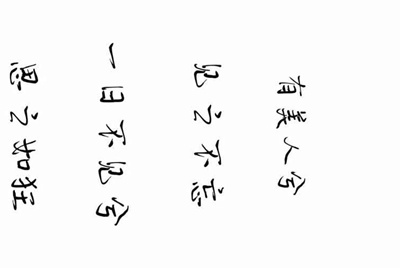 有美人兮
见之不忘
一日不见兮
思之如狂